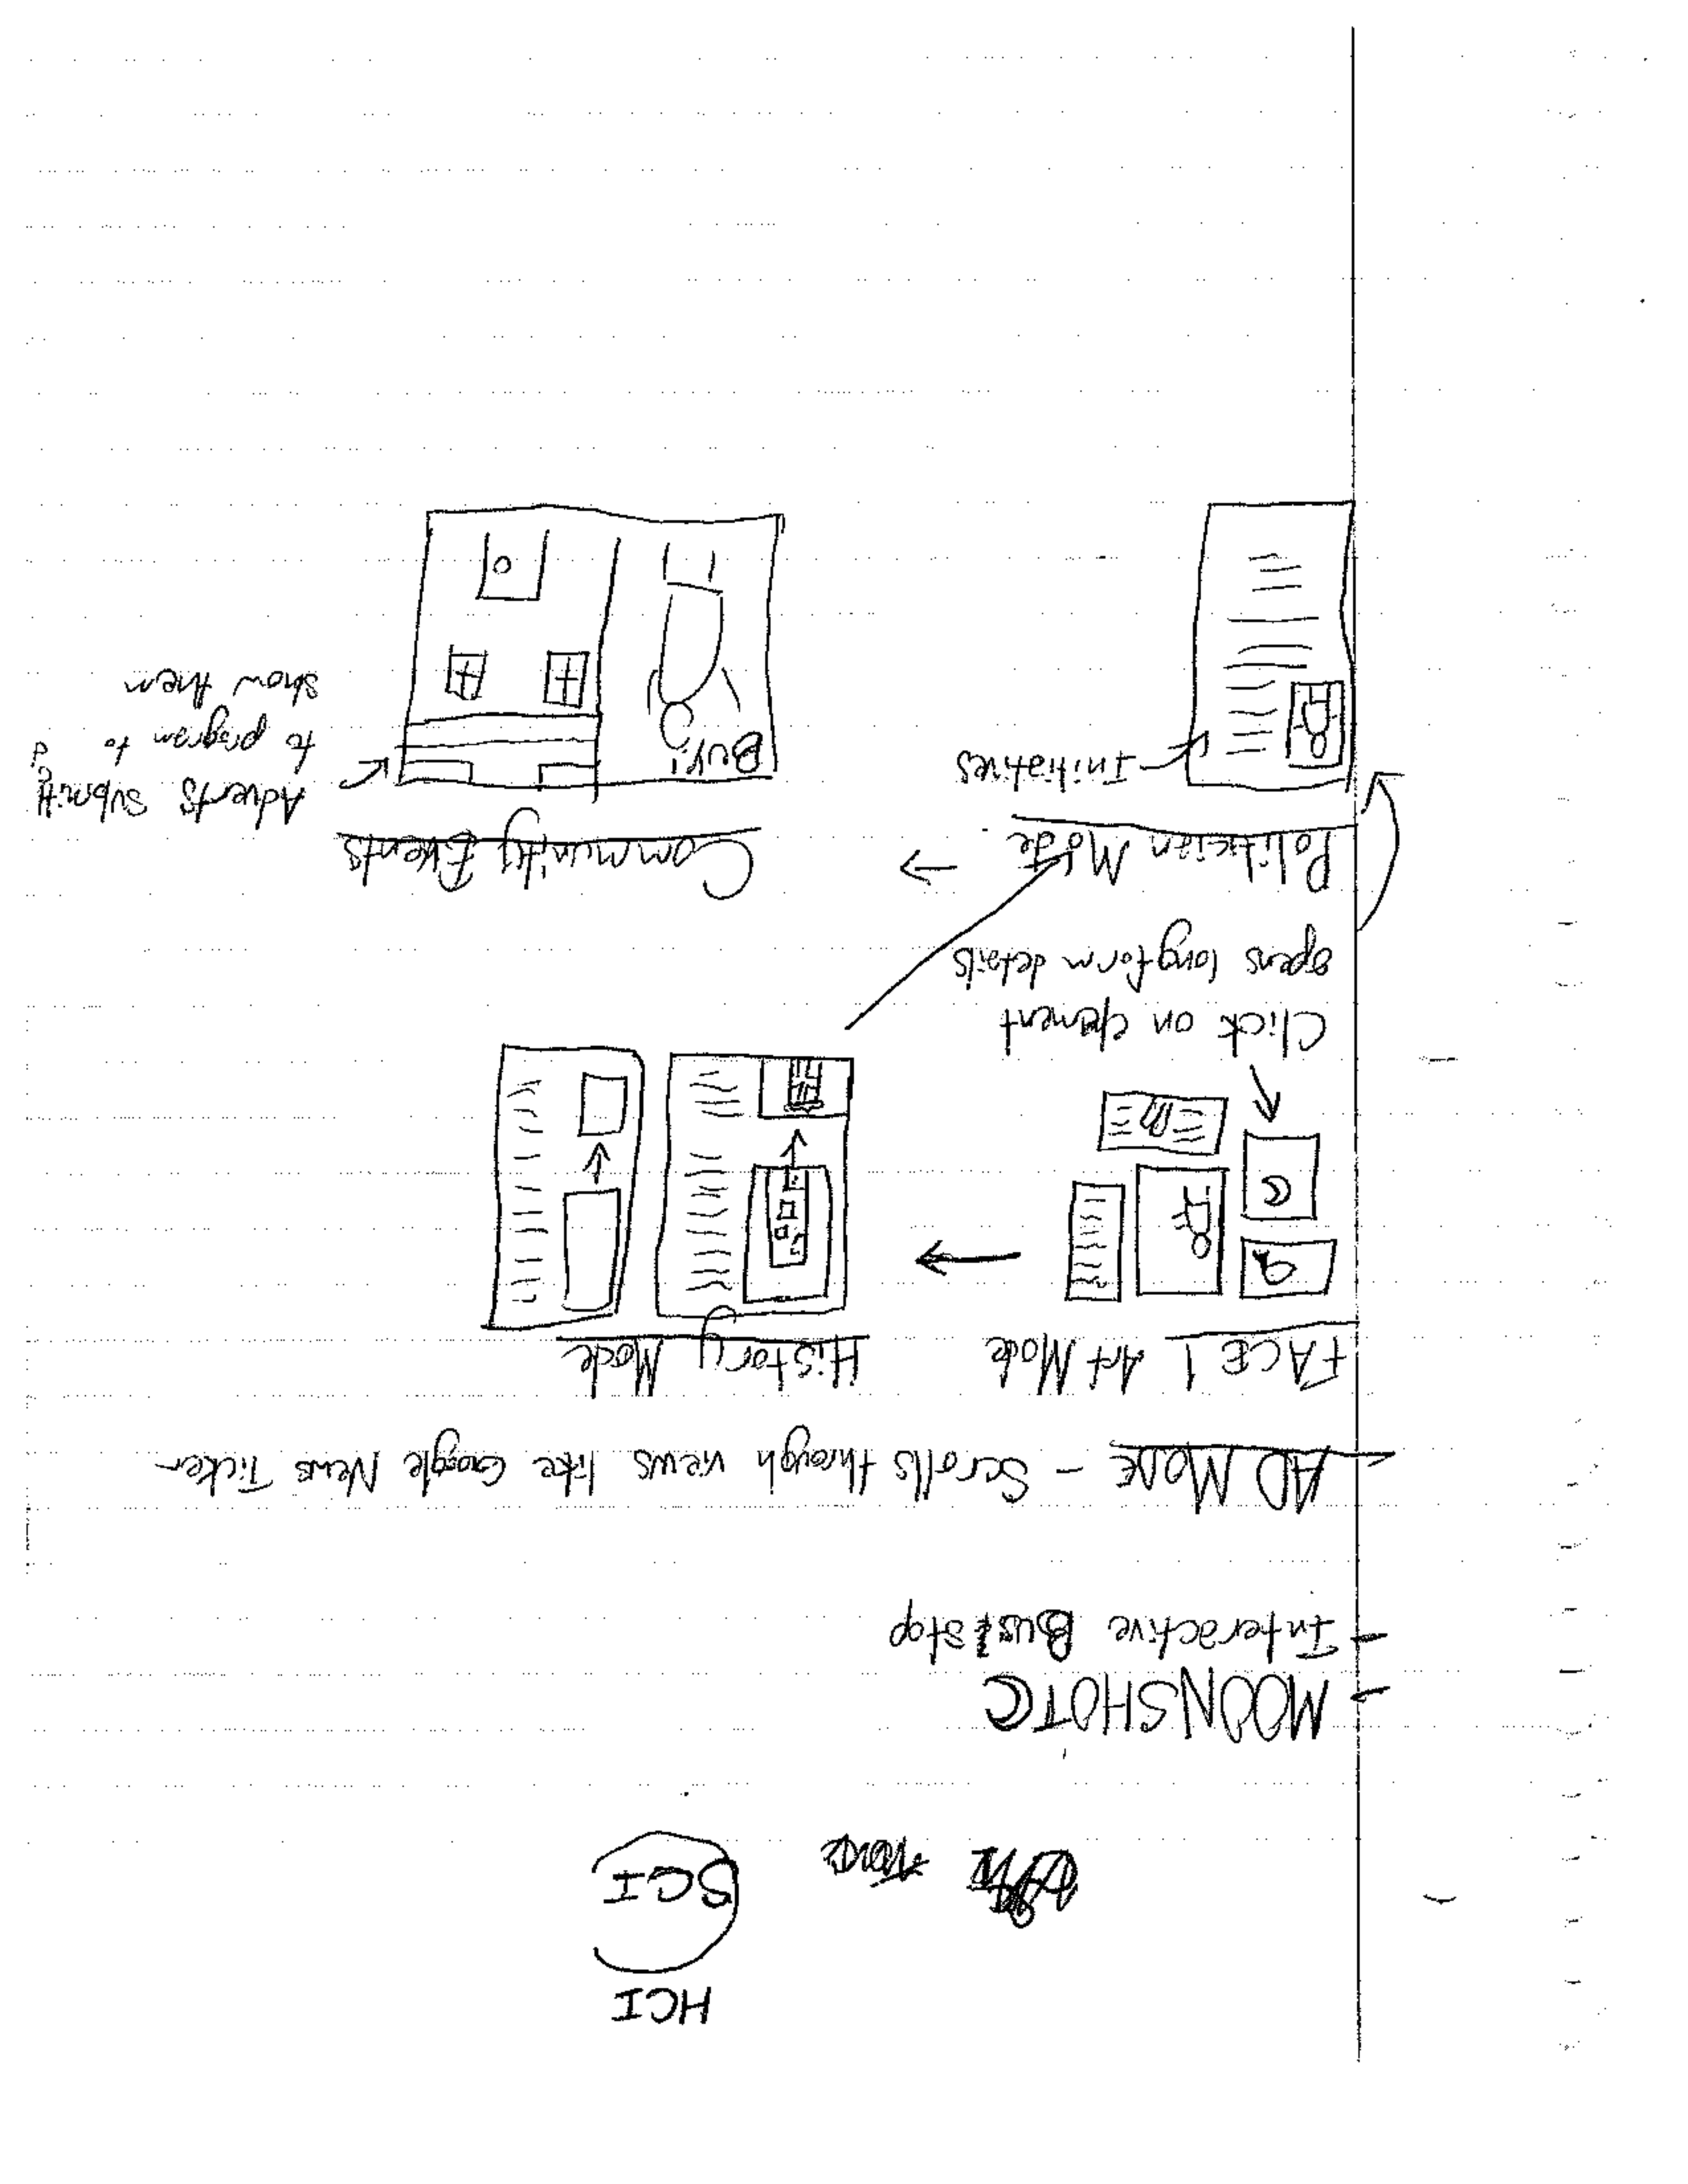 HCI
SCI
MOONSHOT
- Interactive Bus Stop
AD MODE - Scrolls through views like Google News Ticker
FACE 1 Art Mode
History Mode
Click on element
opens longform details
Politician Mode
Community Events
Initiatives
Buy!
Adverts submitted
to program to
show them